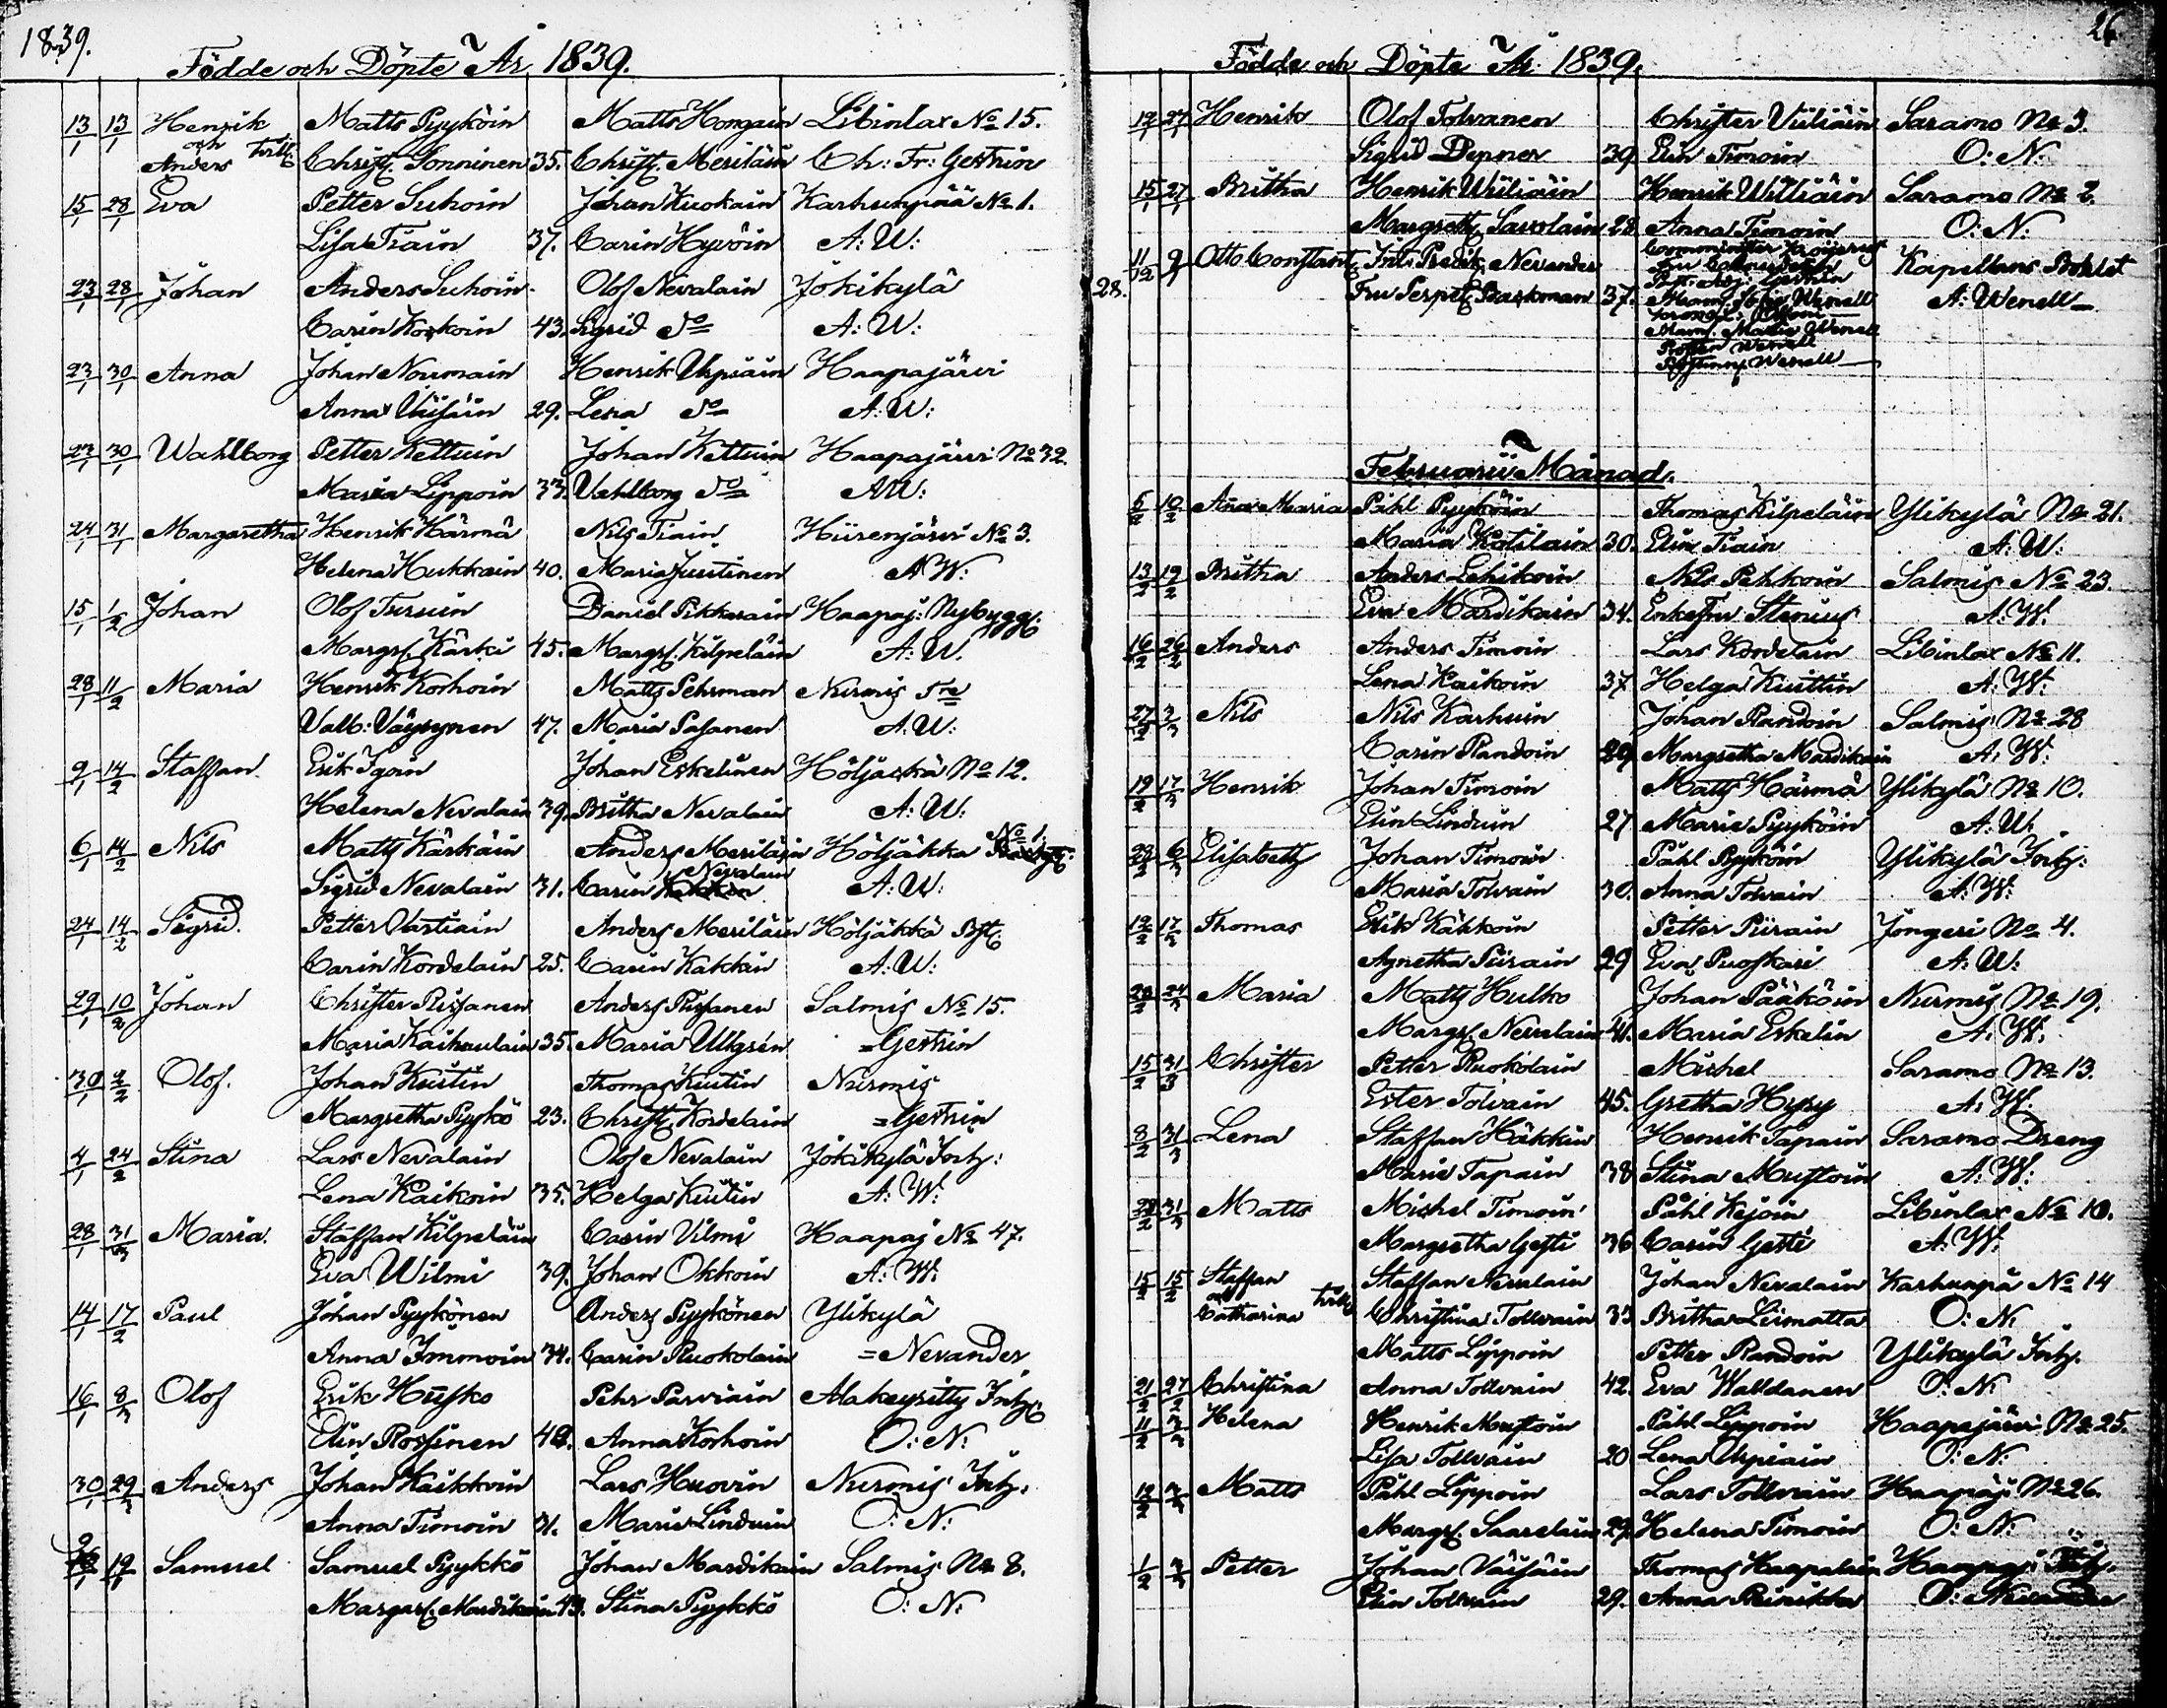 1839.
Födde och Döpte År 1839.
13/1 13/1 Henrik Matts Pyyköin Matts Hongain Libinlax No 15.
och Anders tvill. Christ. Sonninen 35. Christ. Meriläin Ch: Fr: Gestrin
15/1 28/1 Eva Petter Suhoin Johan Kuokain Karhunpää No 1.
Lisa Tiain 37. Carin Hyvöin A: W:
23/1 28/1 Johan Anders Suhoin Olof Nevalain Jokikylä
Carin Korkoin 43. Sigrid Do A: W:
23/1 30/1 Anna Johan Noumain Henrik Urpiain Haapajärvi
Anna Väisäin 29. Lena Do A: W:
23/1 30/1 Wahlborg Petter Kettuin Johan Kettuin Haapajärvi No 32.
Maria Lippoin 33. Vahlborg Do AW:
24/1 31/1 Margaretha Henrik Härmä Nils Tiain Hiirenjärvi No 3.
Helena Hukkain 40. Maria Juutinen A W:
15/1 1/2 Johan Olof Turuin Daniel Pikkarain Haapaj: Nybygg.
Margr. Kärki 45. Margr. Kilpeläin A: W.
28/1 11/2 Maria Henrik Korhoin Matts Pehrman Nurmis
Valb: Väyrynen 47. Maria Pasanen A: W:
9/1 14/2 Staffan Erik Igoin Johan Eskelinen Höljäckä No 12.
Helena Nevalain 39. Britha Nevalain A: W:
6/1 14/2 Nils Matts Kärkäin Anders Meriläin Höljäkkä No 1.
Sigrid Nevalain 31. Carin Nevalain A: W:
24/1 14/2 Sigrid Petter Vartiain Anders Meriläin Höljäkkä
Carin Kordelain 25. Carin Kakkin A: W:
29/1 10/2 Johan Christer Pissanen Anders Pissanen Salmis No 15.
Maria Kaihoulain 35. Maria Ullgrén =Gestrin
30/1 9/2 Olof. Johan Kuitin Thomas Kuitin Nurmis
Margretha Pyykö 23. Christ. Kordelain =Gestrin
4/1 24/2 Stina Lars Nevalain Olof Nevalain Jokikylä Inh:
Lena Kaikoin 35. Helga Kuitin A: W:
28/1 31/3 Maria. Staffan Kilpeläin Carin Vilmi Haapaj No 47.
Eva Wilmi 39. Johan Okkoin A: W:
14/1 17/2 Paul Johan Pyykönen Anders Pyykönen Ylikylä
Anna Immoin 34. Carin Ruokolain =Nevander
16/1 8/3 Olof Erik Huisko Pehr Parviain Alakeyritty Inh:
Elin Rossinen Anna Korhoin O: N:
30/1 29/3 Anders Johan Kaikkoin Lars Huovin Nurmis Inh:
Anna Timoin 31. Maria Linduin O: N:
19/1 Samuel Samuel Pyykkö Johan Mardikain Salmis No 8.
Margar. Mardikain 43. Stina Pyykkö O: N:
26
Födde och Döpte År 1839.
12/1 27/1 Henrik Olof Tolvanen Christer Väliäin Saramo No 3.
Sigrid Depner 39. Elin Timoin O: N:
15/1 27/1 Britha Henrik Wäliäin Henrik Wäliäin Saramo No 2.
Margreth. Savolain 28. Anna Timoin O: N:
28. 11/12 Otto Constant. Nevander Kapellans Bohlst
Fru Perpet. Backman 37. Mams. Sofie Wenell A: Wenell
Mams. Maria Wenell
Wenell
Wenell
Februarii Månad.
5/2 10/2 Anna Maria Påhl Pyyköin Thomas Kilpeläin Ylikylä No 21.
Maria Kotilain 30. Elin Tiain A: W:
13/2 19/2 Britha Anders Lehikoin Nils Pehkoin Salmis No 23.
Eva Mardikain 34. Enkefru Stenius A: W.
16/2 26/2 Anders Anders Timoin Lars Kordelain Libinlax No 11.
Lena Kaikoin 37 Helga Kuittin A: W:
27/2 3/3 Nils Nils Karhuin Johan Randoin Salmis No 28
Carin Randoin 29 Margretha Mardikain A: W:
19/2 17/3 Henrik Johan Timoin Matts Härmä Ylikylä No 10.
Elin Linduin 27 Maria Pyyköin A: W.
28/2 6/3 Elisabeth Johan Timoin Påhl Pyyköin Ylikylä Inh:
Maria Tolvain 30. Anna Tolvain A: W:
12/2 17/3 Thomas Erik Käkkoin Petter Piirain Jongeri No 4.
Agnetha Piirain 29 Eva Puoskari A: W:
28/2 24/3 Maria Matts Hulko Johan Pääköin Nurmis No 19.
Margr. Nevalain 41. Maria Eskelin A: W.
15/2 31/3 Christer Petter Ruokolain Michel Saramo No 13.
Ester Tolvain 45. Gretha Hyry A: W.
8/2 31/3 Lena Staffan Häkkin Henrik Tapain Saramo Dreng
Maria Tapain 38 Stina Mustoin A: W:
28/2 31/3 Matts Michel Timoin Påhl Kejoin Libinlax No 10.
Margretha Gesti 36 Carin Gesti A: W:
15/2 15/2 Staffan Staffan Nevalain Johan Nevalain Karhunpä No 14
och Catharina tvill. Christina Tollvain 33 Britha Liimatta O: N:
Matts Lippoin Petter Randoin Ylikylä Inh.
21/2 27/2 Christina Anna Tollvain 42. Eva Walldanen O: N:
11/2 3/3 Helena Henrik Mustoin Påhl Lippoin Haapajärvi No 25.
Lisa Tollvain 20 Lena Urpiain O: N:
12/2 3/3 Matts Påhl Lippoin Lars Tollvain Haapaj: No 26.
Margr. Saarelain 29. Helena Timoin O: N:
1/2 3/3 Petter Johan Väisäin Thomas Haapalain Haapaj:
Elin Tolvain 29. Anna Reinikka O: Nevander